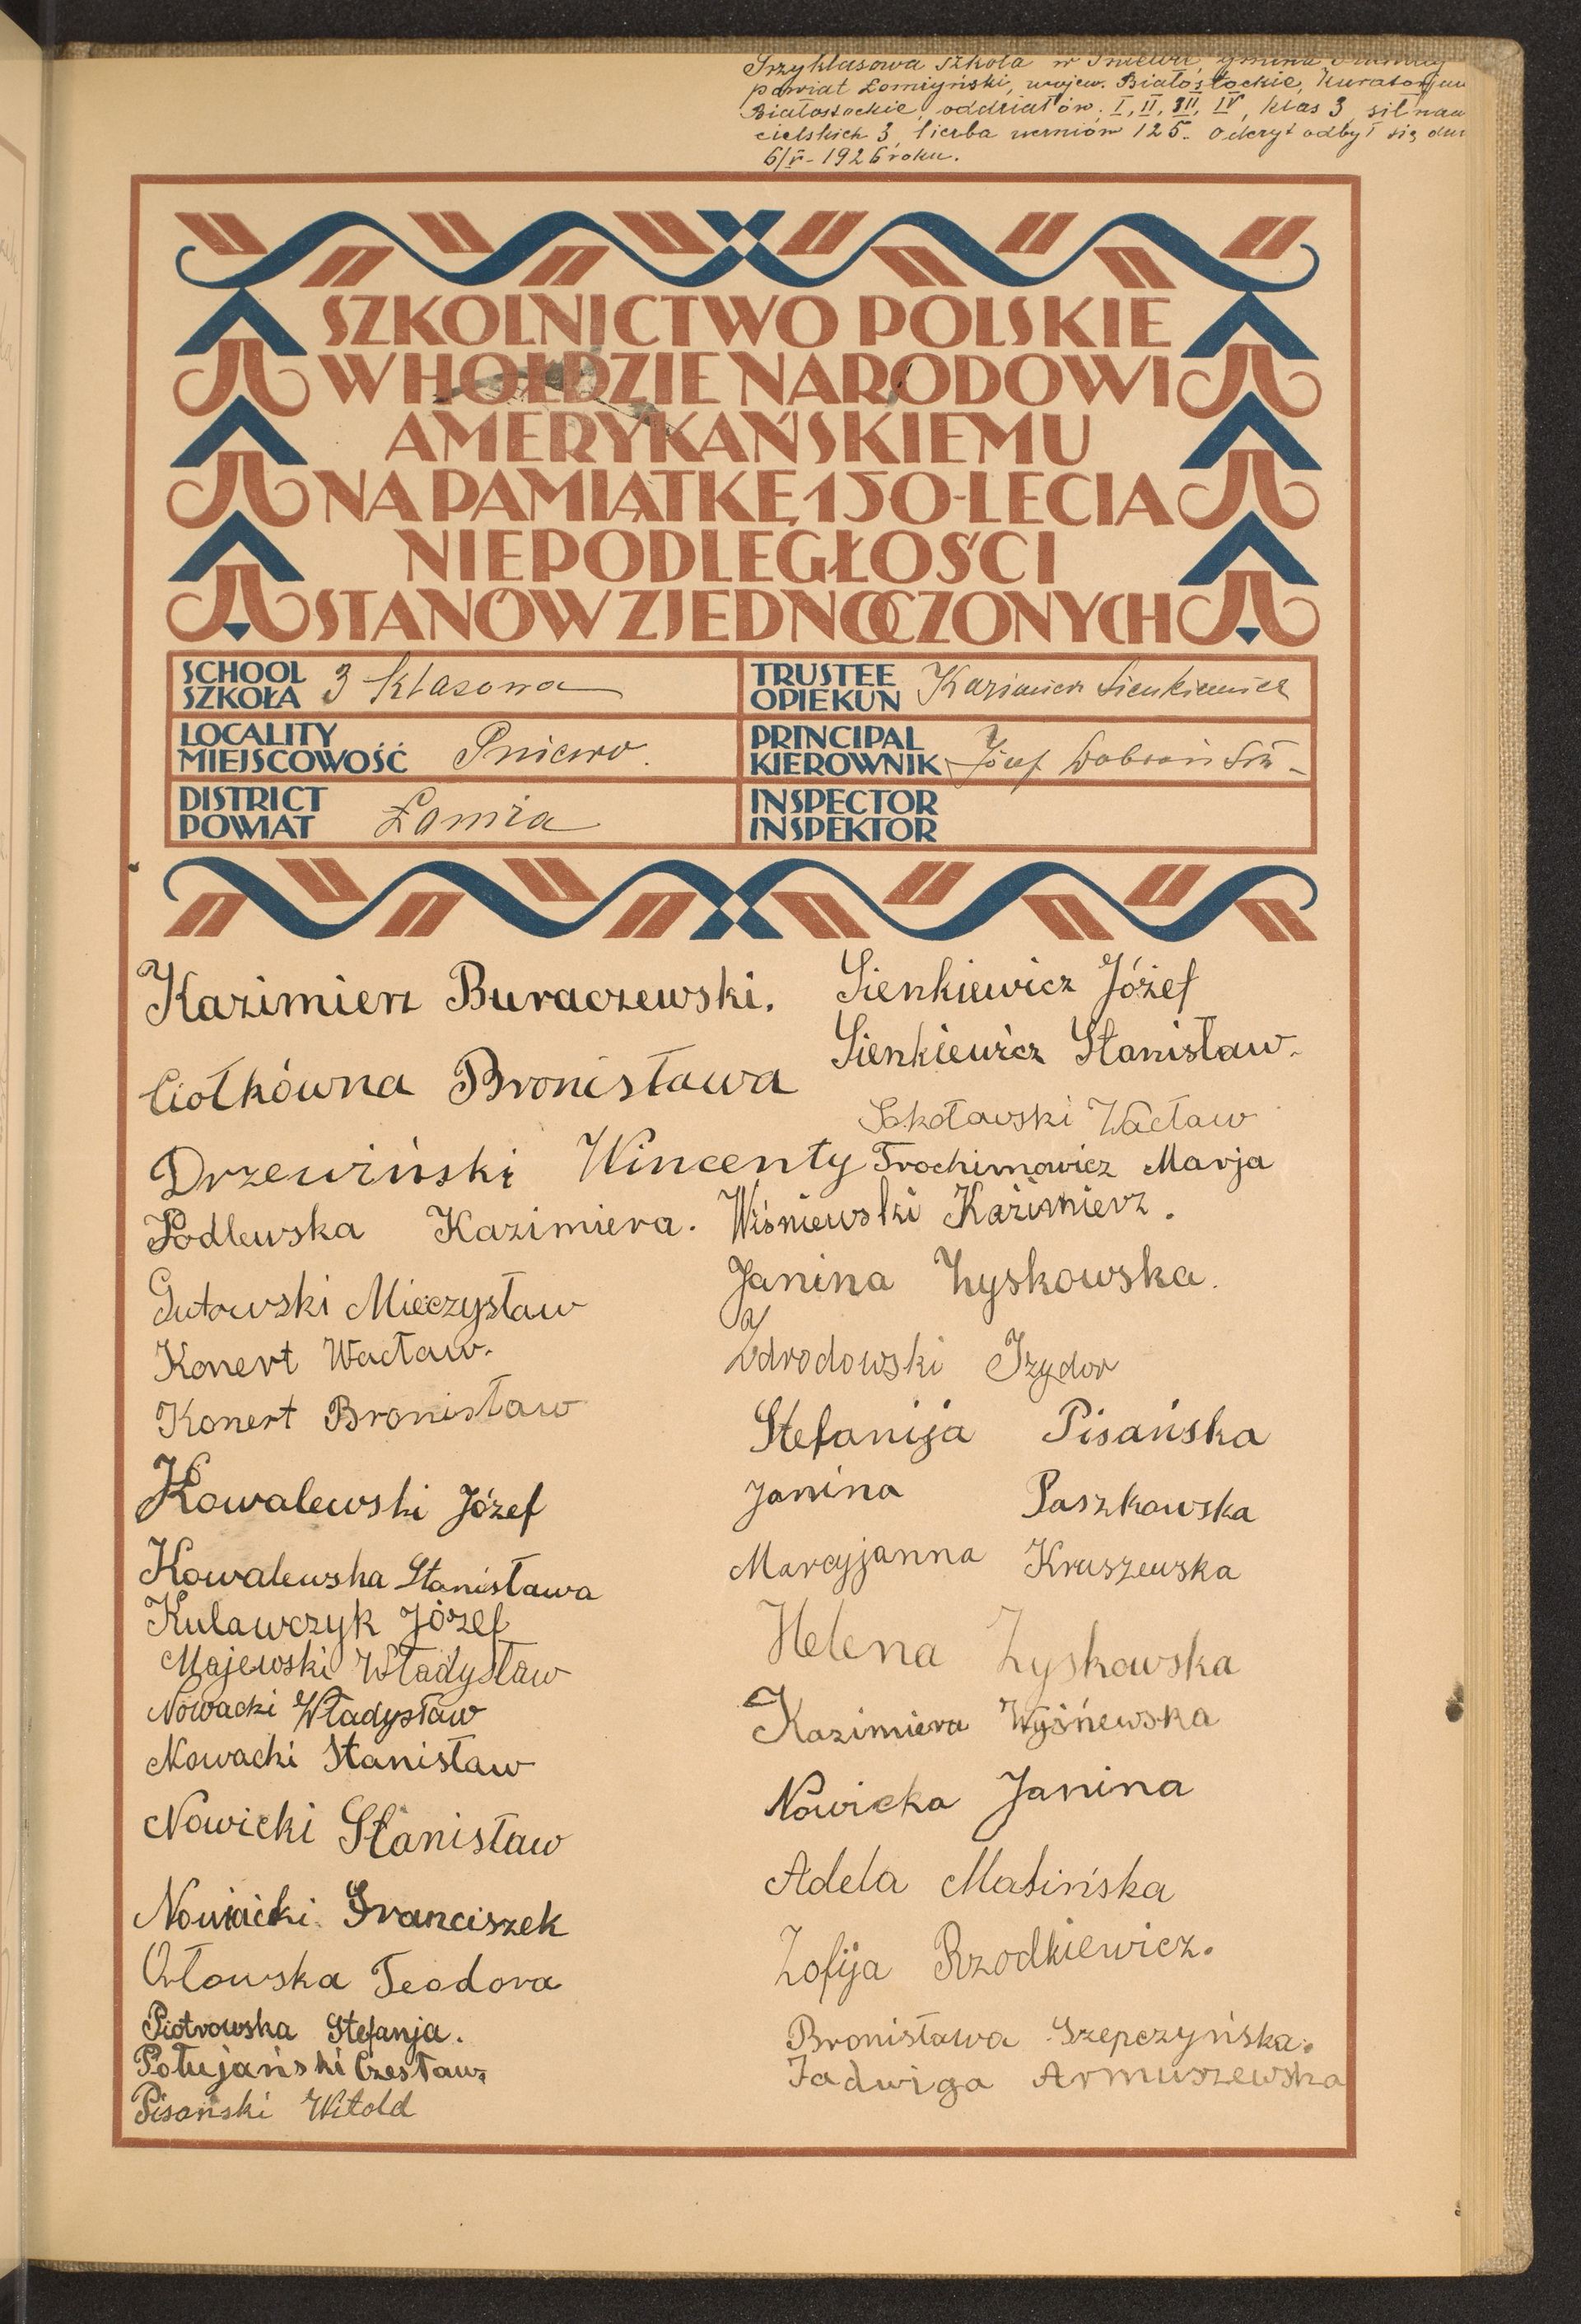 Trzyklasowa szkoła w Pniewie, gmina
powiat Łomżyński, wojew. Białostockie, Kuratorjum
Białostockie, oddziałów: I, II, III, IV, klas 3, sił nau
cielskich 3, liczba uczniów 125. Odczyt odbył się dn
6/V - 1926 roku.
SZKOLNICTWO POLSKIE
W HOŁDZIE NARODOWI
AMERYKAŃSKIEMU
NA PAMIĄTKĘ 150-LECIA
NIEPODLEGŁOŚCI
STANÓW ZJEDNOCZONYCH
SCHOOL
SZKOŁA 3 klasowa
TRUSTEE
OPIEKUN Kazimierz Sienkiewicz
LOCALITY
MIEJSCOWOŚĆ Pniewo.
PRINCIPAL
KIEROWNIK Józef
DISTRICT
POWIAT Łomża
INSPECTOR
INSPEKTOR
Kazimierz Buraczewski.
Ciołkówna Bronisława
Drzewiński Wincenty
Podlewska Kazimiera.
Gutowski Mieczysław
Konert Wacław.
Konert Bronisław
Kowalewski Józef
Kowalewska Stanisława
Kulawczyk Józef
Majewski Władysław
Nowacki Władysław
Nowacki Stanisław
Nowicki Stanisław
Nowacki Franciszek
Orłowska Teodora
Piotrowska Stefanja.
Połujański Czesław.
Pisański Witold
Sienkiewicz Józef
Sienkiewicz Stanisław.
Sokołowski Wacław
Trochimowicz Marja
Wiśniewski Kazimierz.
Janina Zyskowska.
Zdrodowski Izydor
Stefanija Pisańska
Janina Paszkowska
Marcyjanna Kruszewska
Helena Zyskowska
Kazimiera Wyśnewska
Nowicka Janina
Adela Masińska
Zofija Rzodkiewicz.
Bronisława Szepczyńska.
Jadwiga Armuszewska